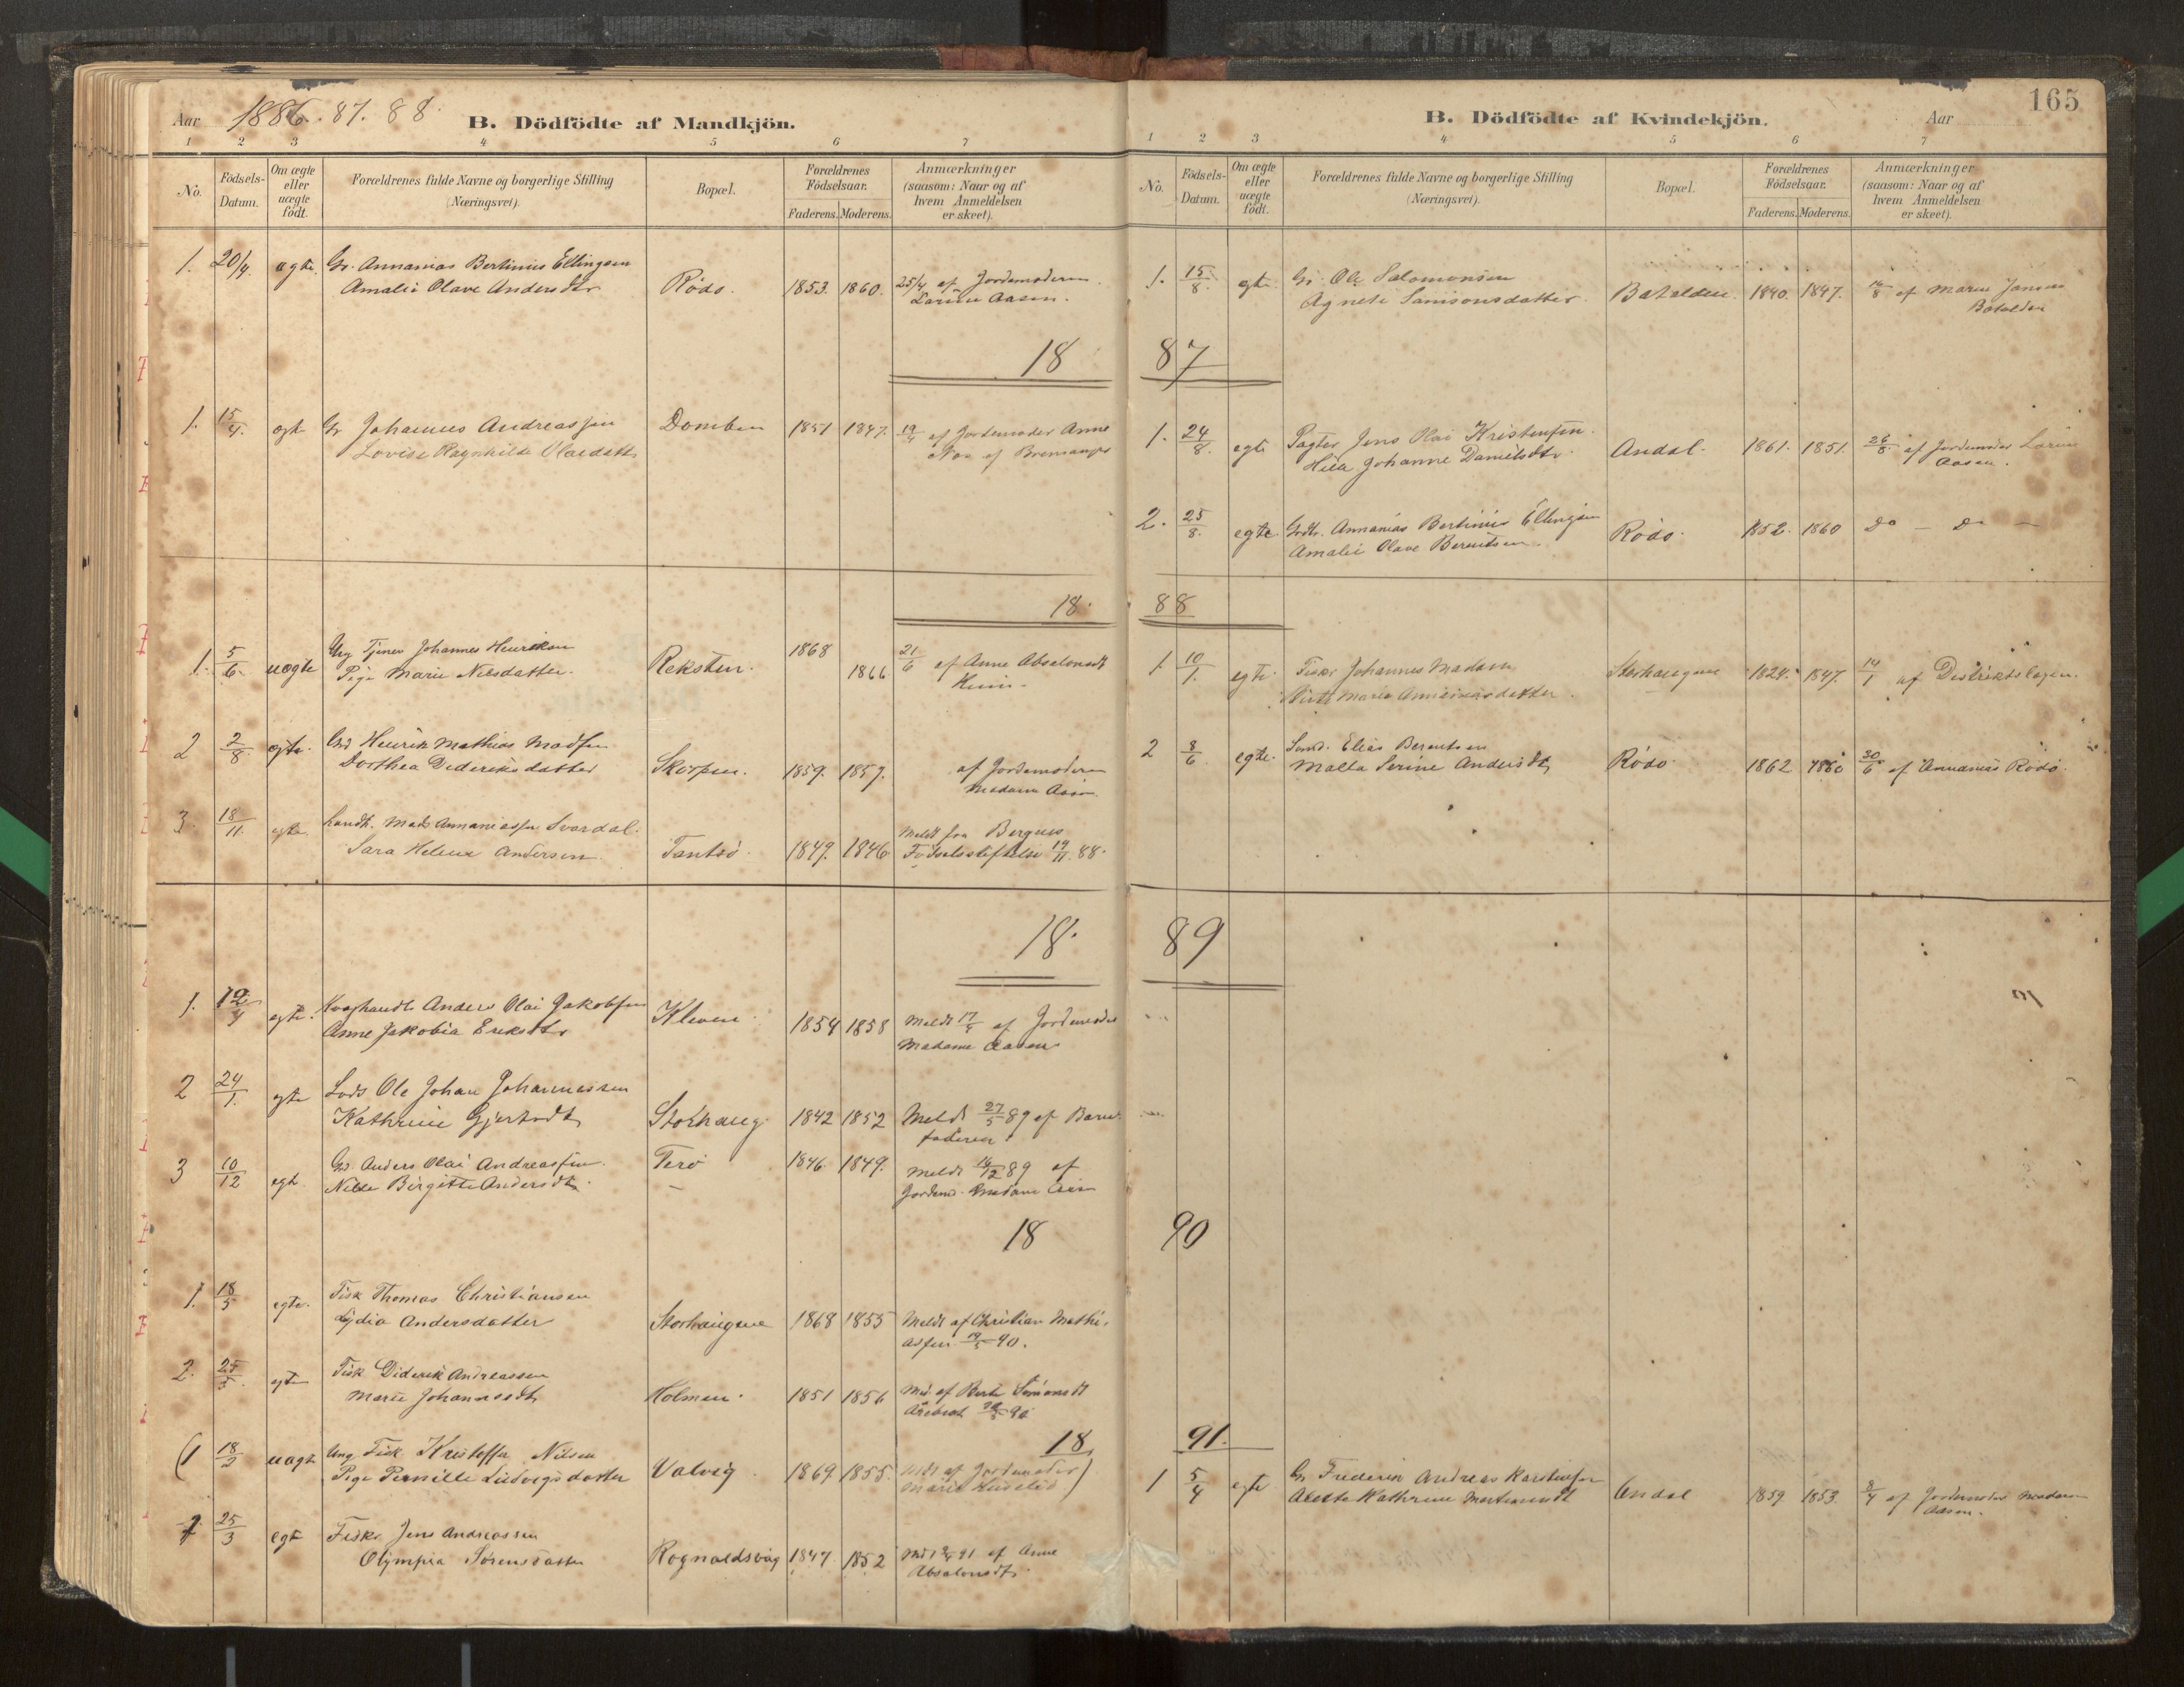 Aar 1886. 87. 88.
B. Dödfödte af Mandkjön.
1 2 3 4 5 6 7
No. Födsels-Datum. Om ægte eller uægte födt. Forældrenes fulde Navne og borgerlige Stilling (Næringsvei). Bopæl. Forældrenes Födselsaar. Faderens. Moderens. Anmærkninger (saasom: Naar og af hvem Anmeldelsen er skeet).
1. 20/4. ægte. Gr. Annanias Bertinius Ellingsen
Amalie Olave Andersdtr Rödö. 1853. 1860. 25/4 af Jordemoderen
Larine Aasen.
18
1. 15/4. ægte Gr Johannes Andreassen Domben 1851 1847. 19/4 af Jordemoder Anne
Lovise Ragnhilde Olaidatter af Bremanger
18.
1. 5/6. uægte Ung Tjener Johannes Henriksen 1868 21/6 af Anne Absalonsdt
Pige Marie Nilsdatter. Reksten. 1866
2 2/8. egte. Grd Henrik Mathias Madsen
Dorthea Dideriksdatter Skorpen. 1859. 1857. af Jordemoderen
Madame Aasen.
3. 18/11. egte Landh. Mads Annaniassen Svardal. Meldt fra Bergens
Sara Helene Andersen Tantsö. 1849. 1846 Födselsstiftelse 19/11 88.
18.
1. egte. Anders Olai Jakobsen Kleven.
Anne Jakobia Eriksdtr 1854 1858 Meldt 17/4 af Jordemoder
Madame Aasen
2 24/1. egte Lods Ole Johan Johannessen
Kathrine Gjertsdt Storhaug 1842 1852 Meldt 27/5 89 af Barne-
faderen
3 10/12 egte Gr. Anders Olai Andreassen Terö 1846 1849. Meldt 16/12 89 af
Birgitte Andersdtr. — Jordem. Madame
18
1. 18/5 egte. Fisk Thomas Christiansen
Lydia Andersdatter Storhaugene 1868 1855 Meldt af Christian Mathi-
assen 19/5 90.
2. 25/5. egte Fisk Diderik Andreassen
Marie Johannesdt Holmen. 1851 1856 Md. af Berte Simonsdt
Årebrot
18
(1 18/3 uægte Ung Fisk. Kristoffer Nilsen
Pige Pernille Ludvigsdatter Valvig 1869 1855. Mdt af Jordemoder)
Marie
1 25/3 egte Fisker Jens Andreassen
Olympia Sörensdatter Rognaldsvåg 1847. 1852 91 af Anne
Absalonsdt.
165
B. Dödfödte af Kvindekjön. Aar
1 2 3 4 5 6 7
No. Födsels-Datum. Om ægte eller uægte födt. Forældrenes fulde Navne og borgerlige Stilling (Næringsvei). Bopæl. Forældrenes Födselsaar. Faderens. Moderens. Anmærkninger (saasom: Naar og af hvem Anmeldelsen er skeet).
1. 15/8. egte. Gr. Ole Salomonsen
Agnete Samsonsdatter. Batalden. 1840. 1847. af Maren Jansen
Batalden
87
1. 24/8. egte Pagter Jens Olai Kristensen
Johanne Danielsdtr. Andal. 1861. 1851. 26/8 af Jordemoder Larine
Aasen.
2. 25/8. egte. Grdbr. Annanias Bertinius Ellingsen
Amalie Olave Berentsen Rödö. 1852. 1860 Do — Do —
88
1. 10/1. egte. Fisker Johannes Madsen Storhaugene 1824. 1847. 14/1 af Distriktslægen.
Marie Annaniasdatter.
2 8/6 egte. Elias Berentsen
Malla Serine Andersdt, Rödö 1862 1860 30/6 af Annanias Rödö.
89
90
91.
1 5/4 egte Gr Frederik Andreas Karstensen
Kathrine Andal 1859 1853. 8/4 af Jordemoder Madame
Aasen.